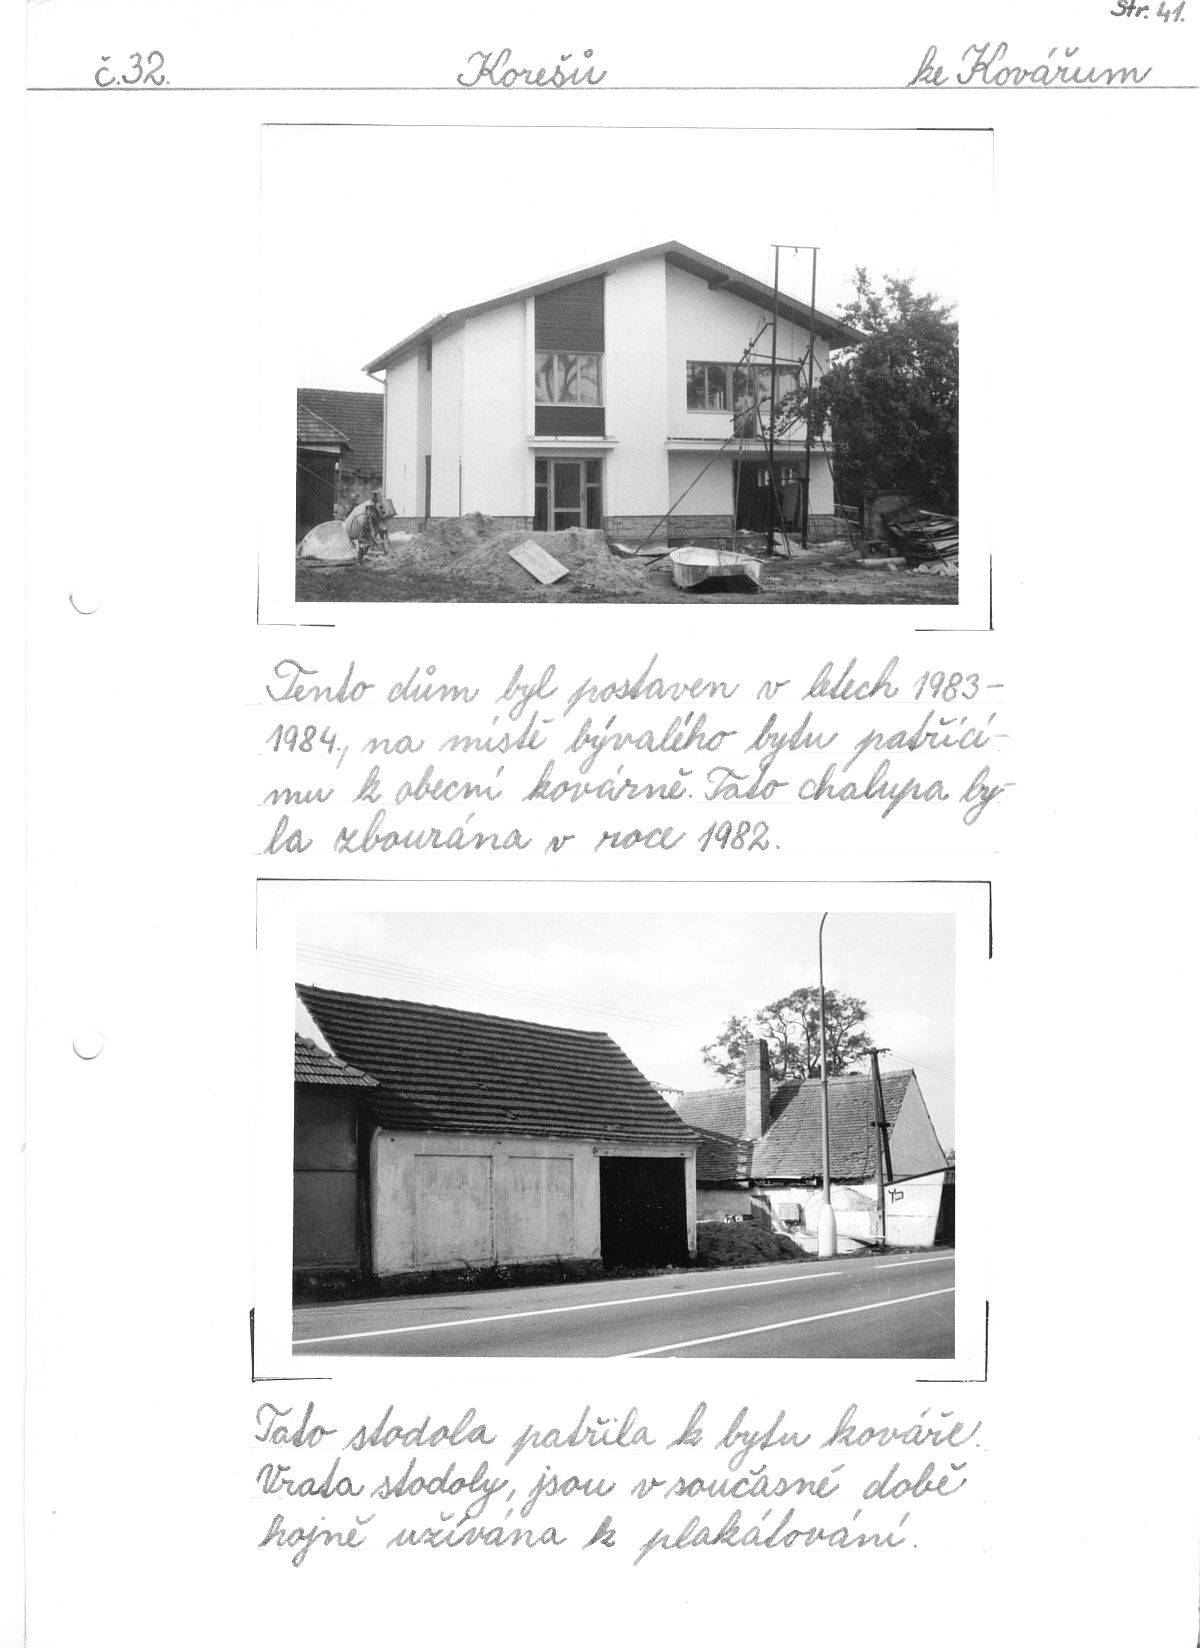 Str. 41.
č. 32. Korešů ke Kovářum
Tento dům byl postaven v letech 1983-
1984., na místě bývalého bytu patřící-
mu k obecní kovárně. Tato chalupa by-
la zbourána v roce 1982.
Tato stodola patřila k bytu kováře.
Vrata stodoly, jsou v současné době
hojně užívána k plakátování.